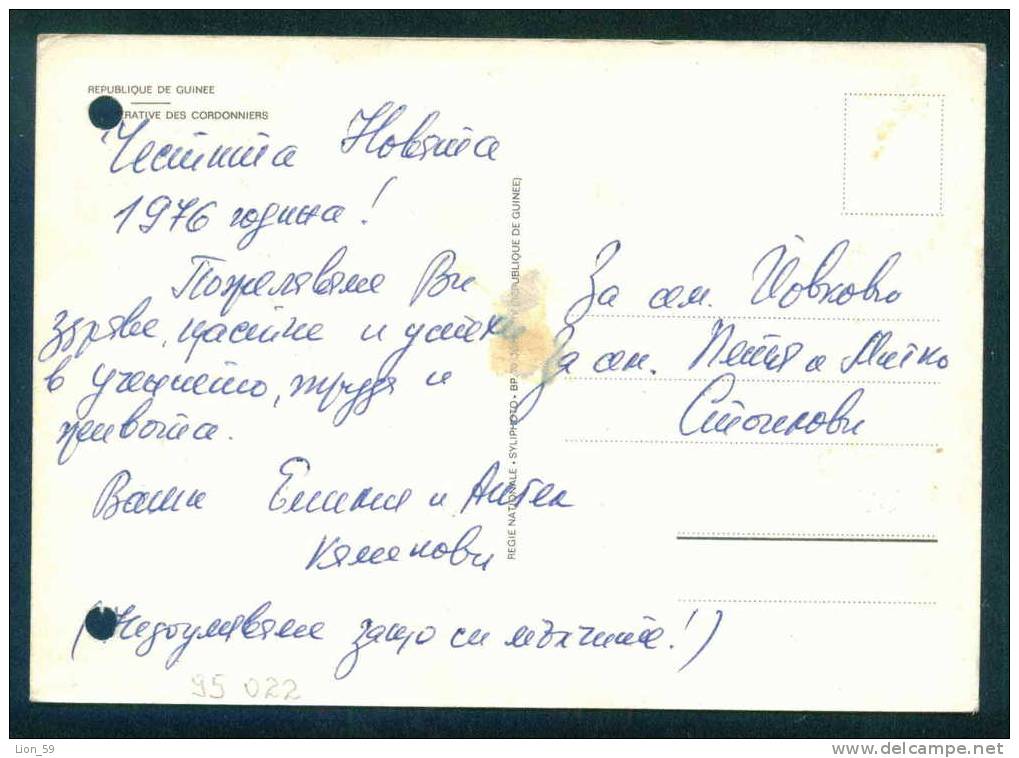 REPUBLIQUE DE GUINEE
RATIVE DES CORDONNIERS
Честита Новата
1976 година!
Пожелаваме Ви
здраве, щастие и успехи
в учението, труда и
живота.
Ваши Емилия и Ангел
Каменови
(Недоумяваме защо си мълчите!)
95 022
REGIE NATIONALE • SYLIPHOTO • BP REPUBLIQUE DE GUINEE)
За сем. Йовково
За сем. Петя и Митко
Стоинови
Lion_59
www.delcampe.net